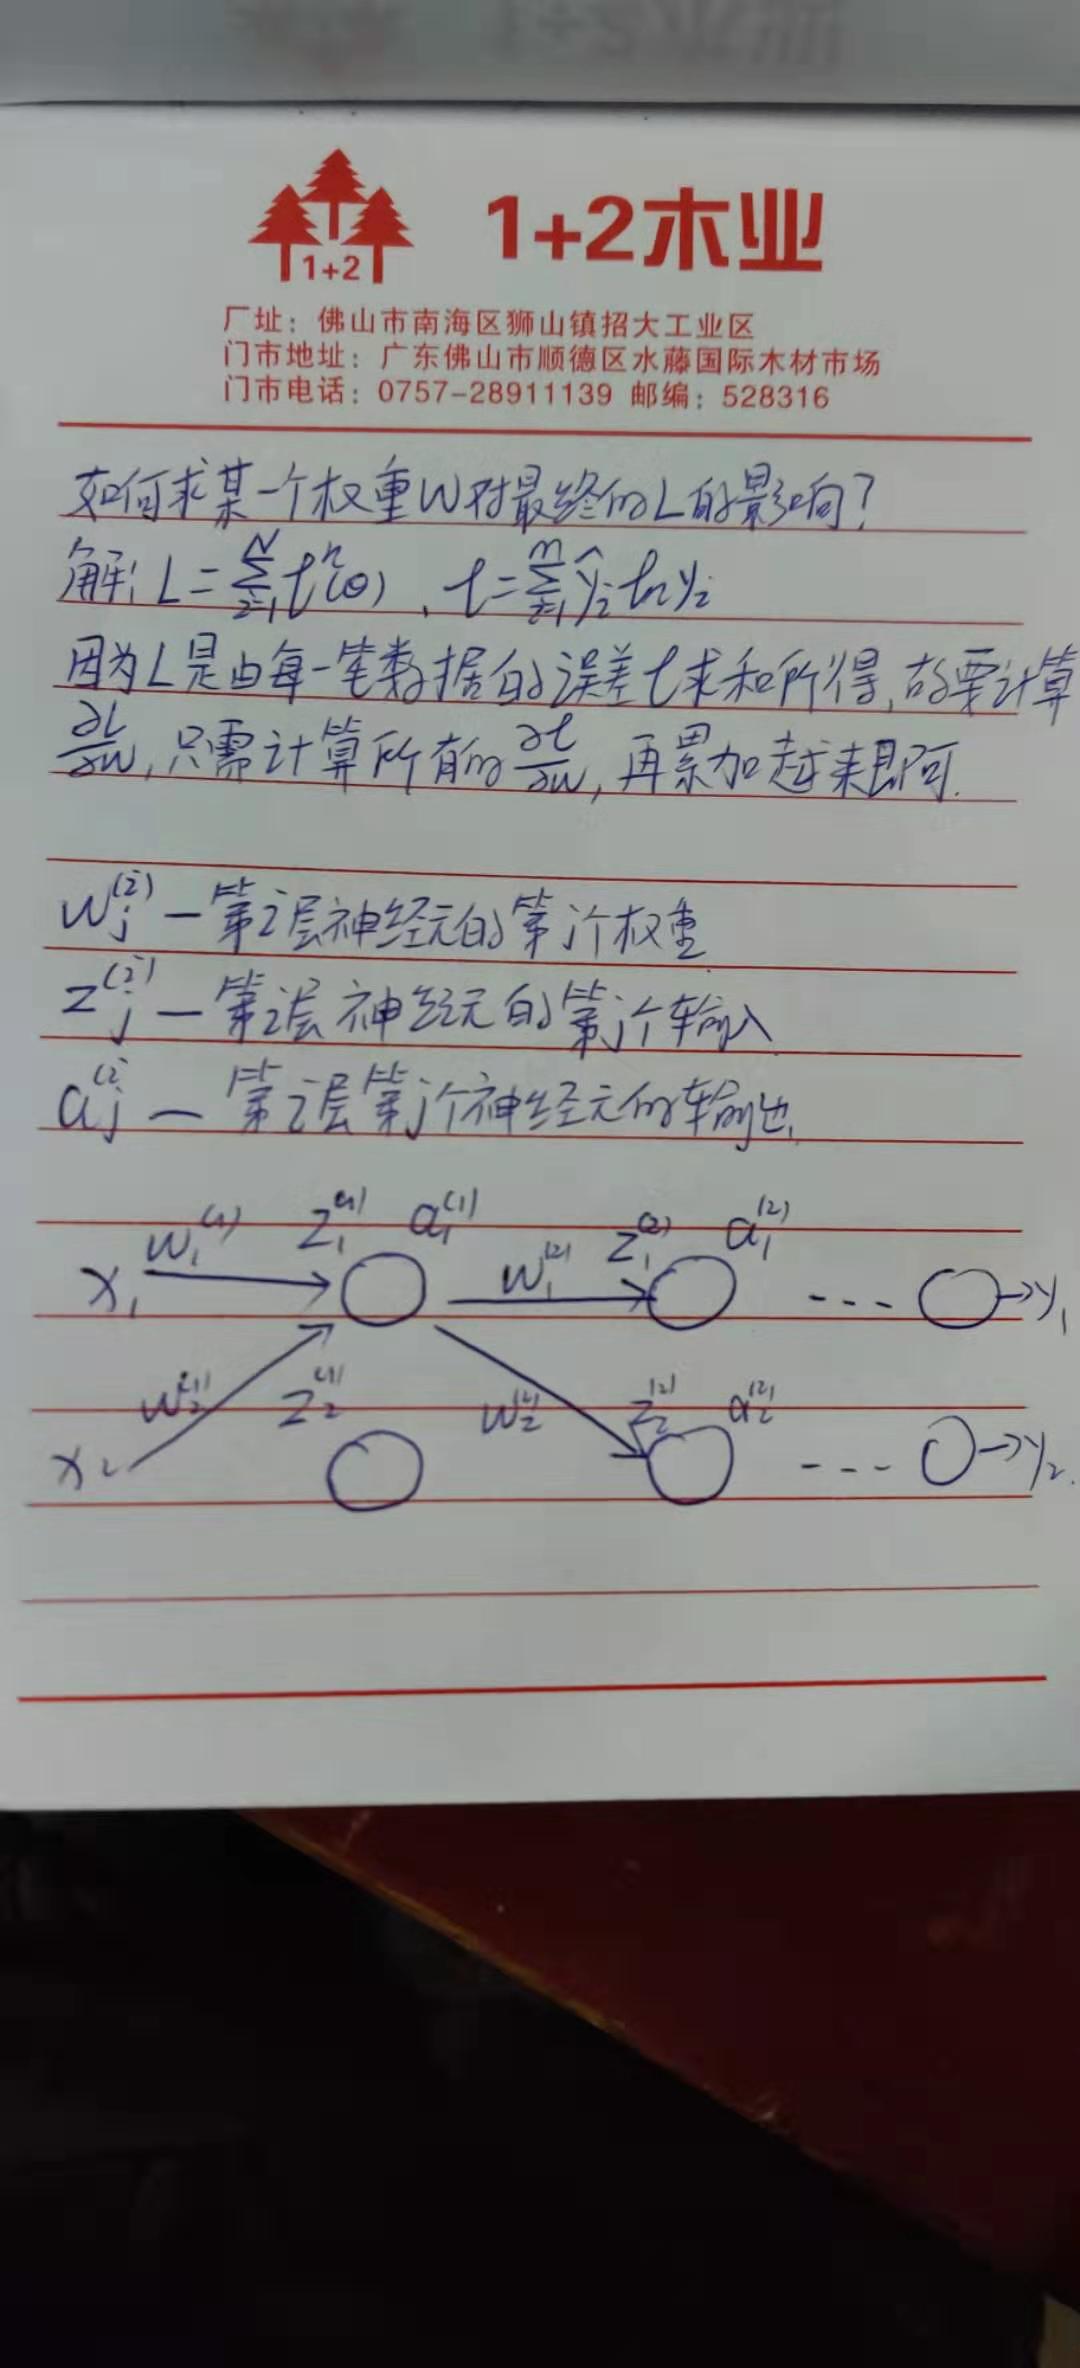 1+2
1+2木业
厂址：佛山市南海区狮山镇招大工业区
门市地址：广东佛山市顺德区水藤国际木材市场
门市电话：0757-28911139 邮编：528316
如何求某一个权重W对最终的L的影响？
解: L=∑_{i=1}^{N} l^n(θ), l=∑_{i=1}^{m} ŷ_i ln y_i
因为L是由每一笔数据的误差l求和所得,故要计算
∂L/∂w, 只需计算所有的∂l/∂w, 再累加起来即可.
W_j^(i) — 第i层神经元的第j个权重
Z_j^(i) — 第i层神经元的第j个输入
a_j^(i) — 第i层第j个神经元的输出.
W_1^(1) Z_1^(1) a_1^(1) Z_1^(2) a_1^(2)
X_1 W_1^(2) --- →y_1
W_2^(1) Z_2^(1) W_2^(2) Z_2^(2) a_2^(2)
X_2 --- →y_2.